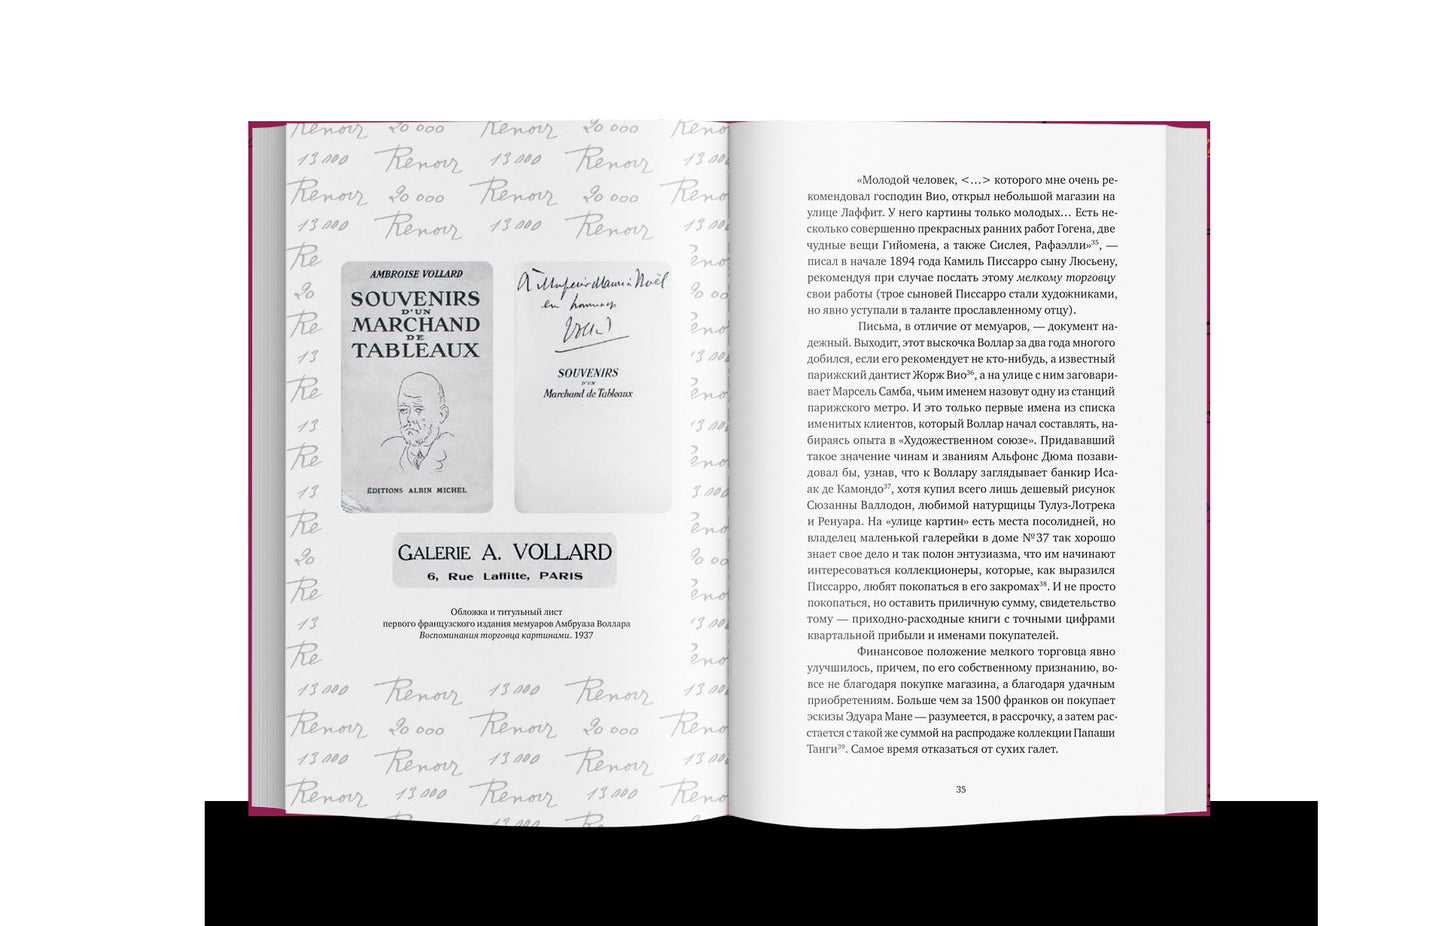 Renoir 20 000 Renoir 20 000 Reno
13 000 Renoir 13 000 Renoir 13 000
Renoir 20 000 Renoir 20 000 Reno
13 000 Renoir 13 000 Renoir 13 000
Re
20
Re
13
Re
13
Re
13
Re
20
Re
13
Re
AMBROISE VOLLARD
SOUVENIRS
D'UN
MARCHAND
DE
TABLEAUX
ÉDITIONS ALBIN MICHEL
À Monsieur Maurice Noël
en hommage
Vollard
SOUVENIRS
D'UN
Marchand de Tableaux
GALERIE A. VOLLARD
6, Rue Laffitte, PARIS
Обложка и титульный лист
первого французского издания мемуаров Амбруаза Воллара
Воспоминания торговца картинами. 1937
13 000 Renoir 13 000 Renoir 13 000
Renoir 20 000 Renoir 20 000 Reno
13 000 Renoir 13 000 Renoir 13 000
Renoir 13 000 Renoir 13 000 Reno
«Молодой человек, <…> которого мне очень ре-
комендовал господин Вио, открыл небольшой магазин на
улице Лаффит. У него картины только молодых… Есть не-
сколько совершенно прекрасных ранних работ Гогена, две
чудные вещи Гийомена, а также Сислея, Рафаэлли»³⁵, —
писал в начале 1894 года Камиль Писсарро сыну Люсьену,
рекомендуя при случае послать этому мелкому торговцу
свои работы (трое сыновей Писсарро стали художниками,
но явно уступали в таланте прославленному отцу).
Письма, в отличие от мемуаров, — документ на-
дежный. Выходит, этот выскочка Воллар за два года многого
добился, если его рекомендует не кто-нибудь, а известный
парижский дантист Жорж Вио³⁶, а на улице с ним заговари-
вает Марсель Самба, чьим именем назовут одну из станций
парижского метро. И это только первые имена из списка
именитых клиентов, который Воллар начал составлять, на-
бираясь опыта в «Художественном союзе». Придававший
такое значение чинам и званиям Альфонс Дюма позави-
довал бы, узнав, что к Воллару заглядывает банкир Иса-
ак де Камондо³⁷, хотя купил всего лишь дешевый рисунок
Сюзанны Валлодон, любимой натурщицы Тулуз-Лотрека
и Ренуара. На «улице картин» есть места посолидней, но
владелец маленькой галерейки в доме №37 так хорошо
знает свое дело и так полон энтузиазма, что им начинают
интересоваться коллекционеры, которые, как выразился
Писсарро, любят покопаться в его закромах³⁸. И не просто
покопаться, но оставить приличную сумму, свидетельство
тому — приходно-расходные книги с точными цифрами
квартальной прибыли и именами покупателей.
Финансовое положение мелкого торговца явно
улучшилось, причем, по его собственному признанию, во-
все не благодаря покупке магазина, а благодаря удачным
приобретениям. Больше чем за 1500 франков он покупает
эскизы Эдуара Мане — разумеется, в рассрочку, а затем рас-
стается с такой же суммой на распродаже коллекции Папаши
Танги³⁹. Самое время отказаться от сухих галет.
35